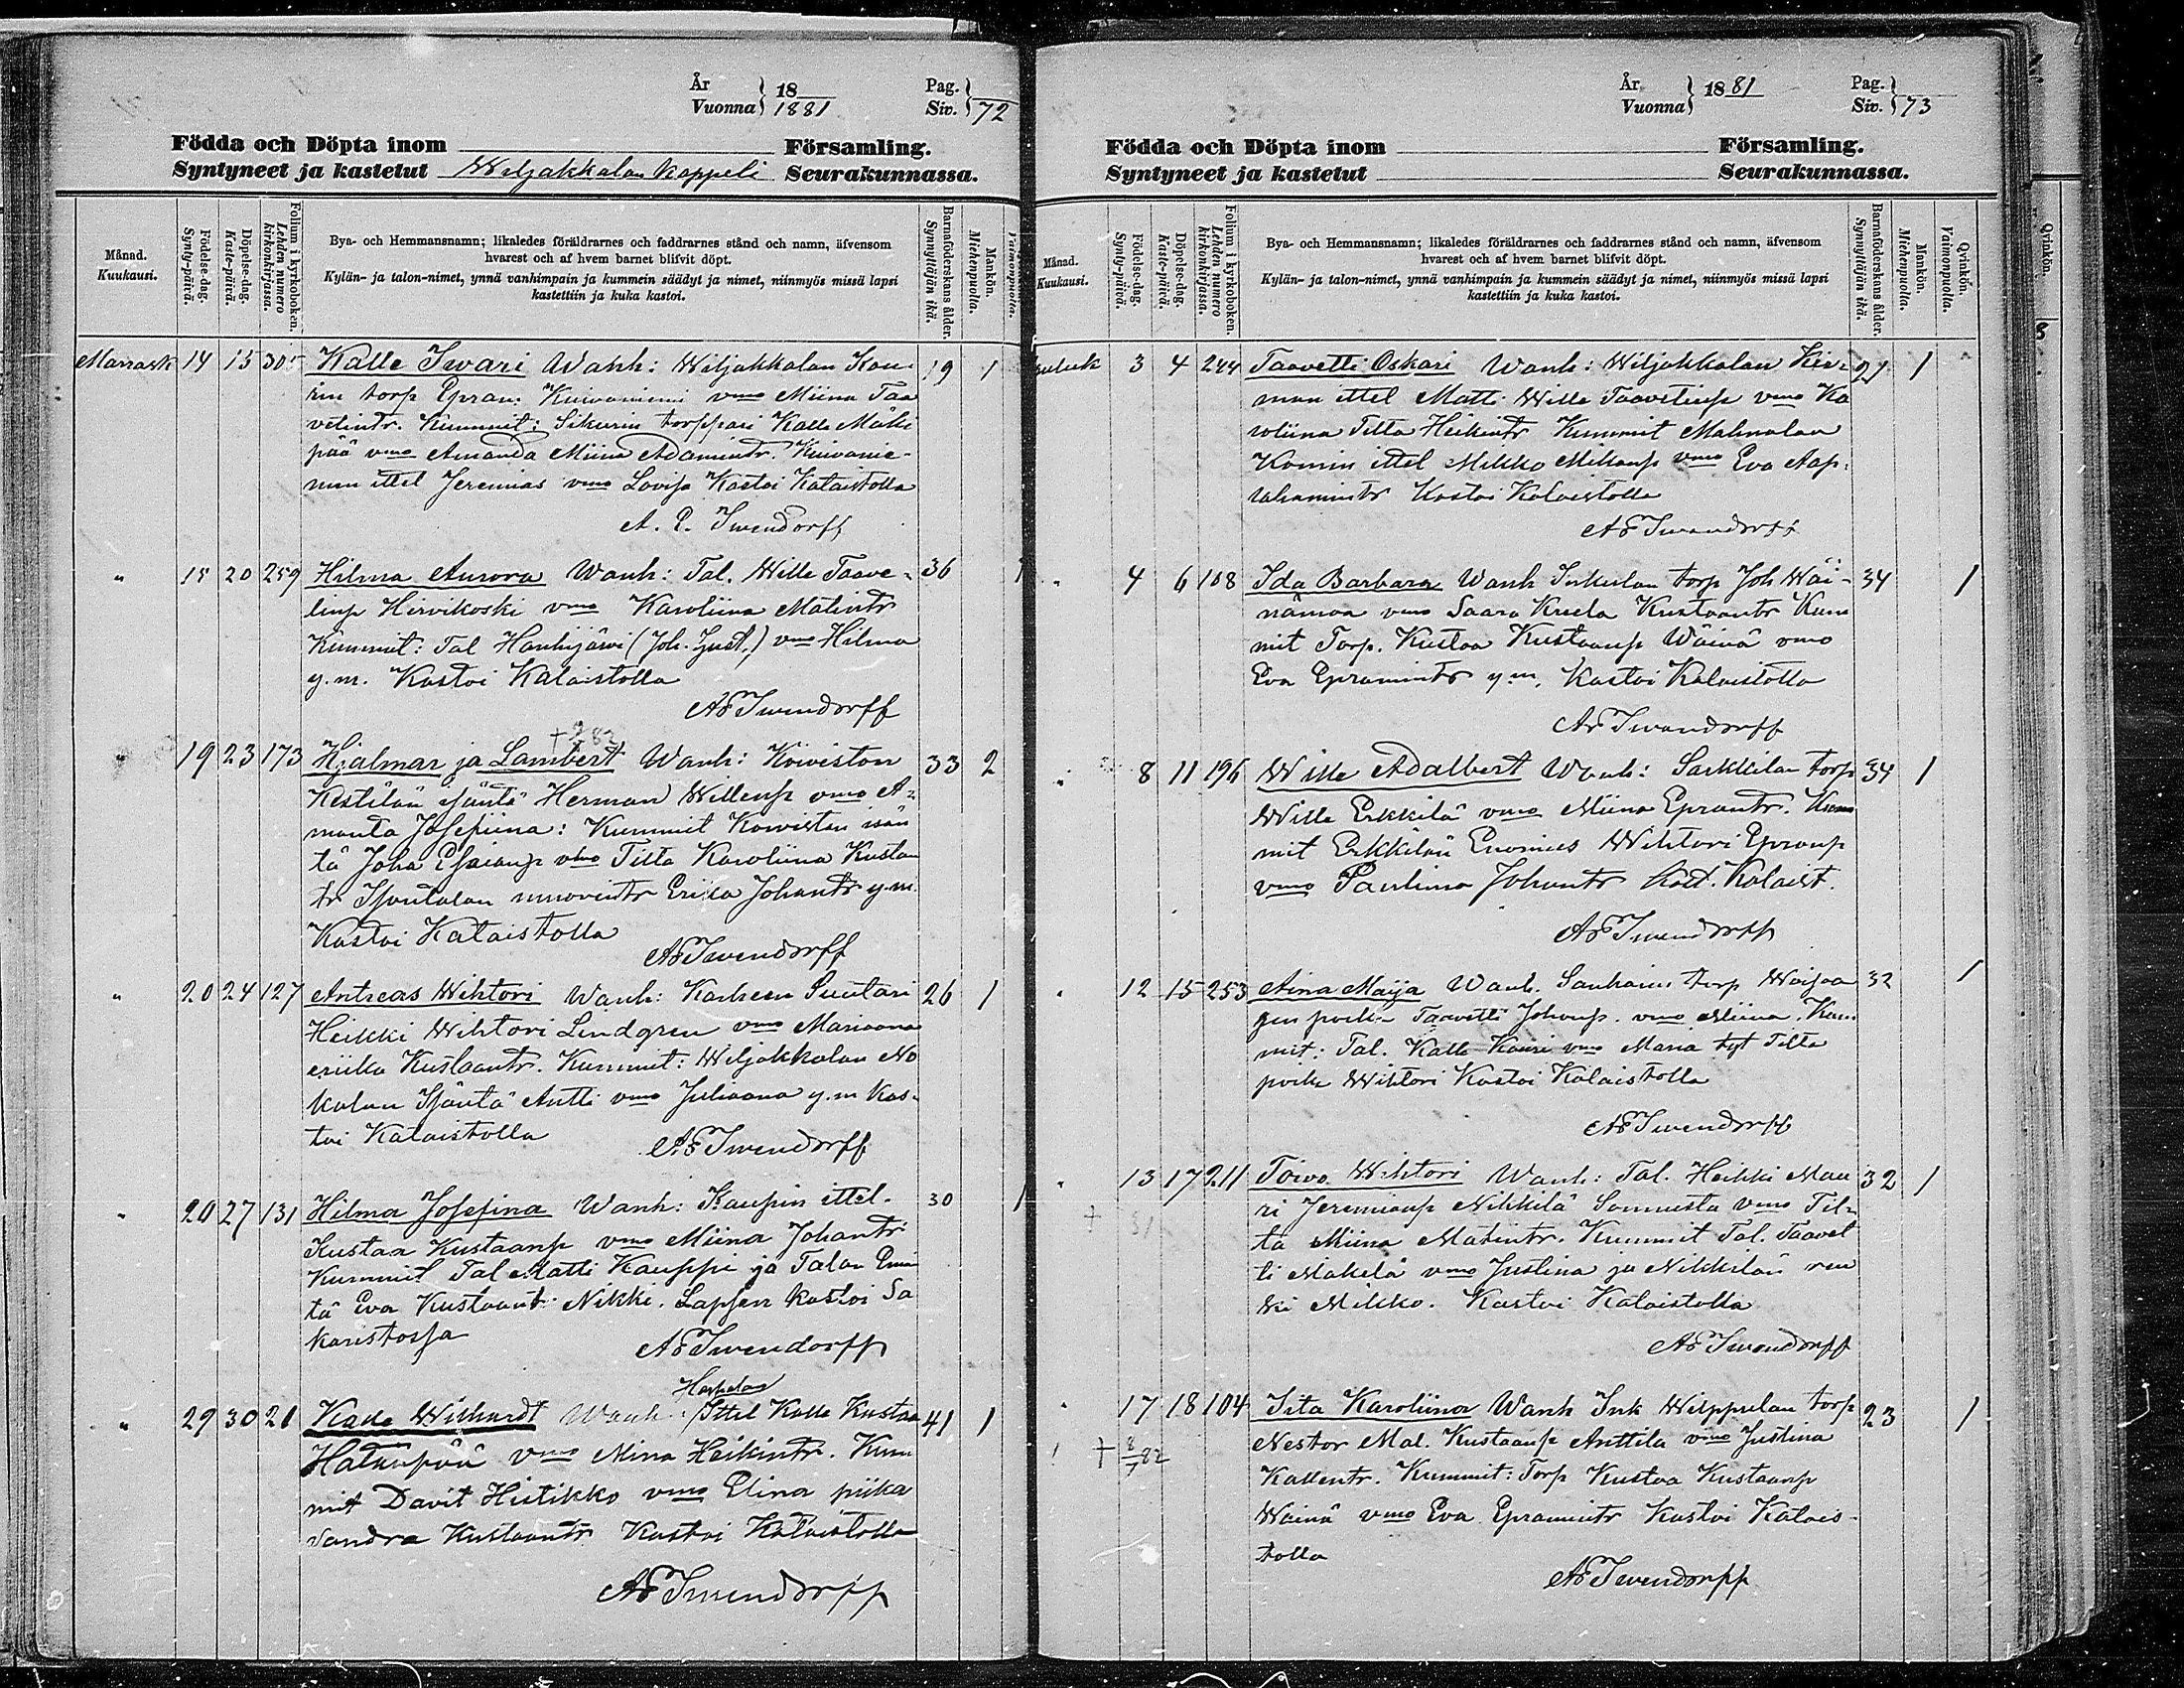 År
Vuonna } 18 1881
Pag.
Siv. } 72
Födda och Döpta inom Församling.
Syntyneet ja kastetut Wiljakkalan Kappeli Seurakunnassa.
Månad.
Kuukausi.
Födelse-dag.
Synty-päivä.
Döpelse-dag.
Kaste-päivä.
Folium i kyrkoboken.
Lehden numero kirkonkirjassa.
Bya- och Hemmansnamn; likaledes föräldrarnes och faddrarnes stånd och namn, äfvensom
hvarest och af hvem barnet blifvit döpt.
Kylän- ja talon-nimet, ynnä vanhimpain ja kummein säädyt ja nimet, niinmyös missä lapsi
kastettiin ja kuka kastoi.
Barnaföderskans ålder.
Synnyttäjän ikä.
Mankön.
Miehenpuolta.
Vaimonpuolta.
Marrask 14 15 305 Kalle Iwari Wanh: Wiljakkalan Kou-
rin torp Epram. Kuivaniemi vmo Miina Taa
vetintr. Kummit: Sikurin torppari Kalle Mäki
pää vmo Amanda Miina Adamintr. Kuivanie-
men ittel Jeremias vmo Lovisa Kastoi Kalaistolla 19 1
A. E. Iwendorff
" 15 20 259 Hilma Aurora Wanh: Tal. Wille Taave-
tinp Hirvikoski vmo Karoliina Matintr
Kummit: Tal Hanhijärvi (Joh. Gust.) vmo Hilma
y.m. Kastoi Kalaistolla 36 1
AE Iwendorff
" 19 23 173 Hjalmar ja Lambert Wanh: Koiviston
Kestilän isäntä Herman Willenp vmo A-
manda Josefiina: Kummit Koiviston isän
tä Joha Esaianp vmo Tilta Karoliina Kustan
tr Isontalon nuorintr Erika Johantr y.m.
Kastoi Kalaistolla 33 2
AE Iwendorff
" 20 24 127 Antreas Wihtori Wanh: Karheen Suutari
Heikki Wihtori Lindgren vmo Mariaana
eriika Kustaantr. Kummit: Wiljakkalan No
kalan Isäntä Antti vmo Juliaana y.m Kas-
toi Kalaistolla 26 1
AE Iwendorff
" 20 27 131 Hilma Josefina Wanh: Kaupin ittel.
Kustaa Kustaanp vmo Miina Johantr
Kummit Tal Matti Kauppi ja Talon Emän
tä Eva Kustaant. Nikki. Lapsen kastoi Sa
karistossa 30 1
AE Iwendorff
" 29 30 21 Kalle Wilhardt Wanh. Ittel Kalle Kustaa
Hatanpää vmo Mina Heikintr. Kum
mit Davit Hietikko vmo Elina piika
Sandra Kustaantr Kastoi Kalaistolla 41 1
AE Iwendorff
År
Vuonna } 1881
Pag.
Siv. } 73
Födda och Döpta inom Församling.
Syntyneet ja kastetut Seurakunnassa.
Månad.
Kuukausi.
Födelse-dag.
Synty-päivä.
Döpelse-dag.
Kaste-päivä.
Folium i kyrkoboken.
Lehden numero kirkonkirjassa.
Bya- och Hemmansnamn; likaledes föräldrarnes och faddrarnes stånd och namn, äfvensom
hvarest och af hvem barnet blifvit döpt.
Kylän- ja talon-nimet, ynnä vanhimpain ja kummein säädyt ja nimet, niinmyös missä lapsi
kastettiin ja kuka kastoi.
Barnaföderskans ålder.
Synnyttäjän ikä.
Mankön.
Miehenpuolta.
Qvinkön.
Vaimonpuolta.
Qvinkön.
3 4 244 Taavetti Oskari Wanh: Wiljakkalan
ittel Matti Wille Taavetinp vmo Ka
roliina Tilta Heikintr Kummit Mahnalan
Komin ittel Mikko Mikanp vmo Eva Aap-
rahamintr Kastoi Kalaistolla 1
AE Iwendorff
" 4 6 108 Ida Barbara Wanh Inkulan torp Joh Wäi-
nämöä vmo Saara Kustaantr Kum
mit Torp. Kustaa Kustaanp Wäinä vmo
Eva Epramintr y.m. Kastoi Kalaistolla 34 1
AE Iwendorff
" 8 11 196 Wille Adalbert Wanh: Sarkkilan torp
Wille Erkkilä vmo Miina Eprantr. Kum
mit Erkkilän Wihtori Epranp
vmo Pauliina Johantr Kast. Kalaist. 34 1
AE Iwendorff
" 12 15 253 Aina Maija Wanh. torp
Taavetti Johanp. vmo Miina. Kum
mit: Tal. Kalle Kouri vmo Maria tyt Tilta
poika Wihtori Kastoi Kalaistolla 32 1
AE Iwendorff
" 13 17 211 Toivo Wihtori Wanh: Tal. Heikki Mau
ri Jeremianp Nikkilä vmo Til-
ta Miina Matintr. Kummit Tal. Taavet
ti Mäkelä vmo Justina ja Nikkilän ren
ki Mikko. Kastoi Kalaistolla 32 1
AE Iwendorff
" 17 18 104 Iita Karoliina Wanh Ink Wilppulan torp
Nestor Mat. Kustaanp Anttila vmo Justina
Kallentr. Kummit: Torp Kustaa Kustaanp
Wäinä vmo Eva Epramintr Kastoi Kalais-
tolla 23 1
+ 8/7 82
AE Iwendorff